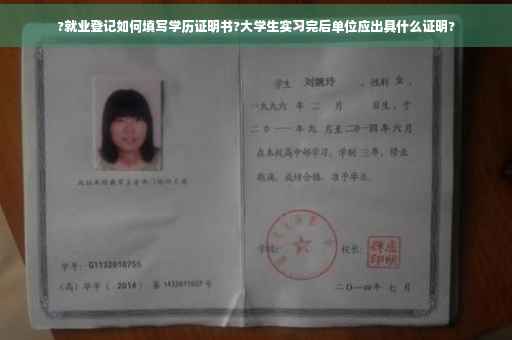 ?就业登记如何填写学历证明书?大学生实习完后单位应出具什么证明?
学生 刘婉玲 ，性别 女 ，
一九九六 年 二 月 日生，于
二0一一 年 九 月至 二0一四 年 六 月
在本校高中部学习，学制 三 年，修业
期满，成绩合格，准予毕业。
学校: 校长:
二〇一四年 七 月
学号: G1132010755
(高) 毕字 ( 2014 ) 第 1432011027 号